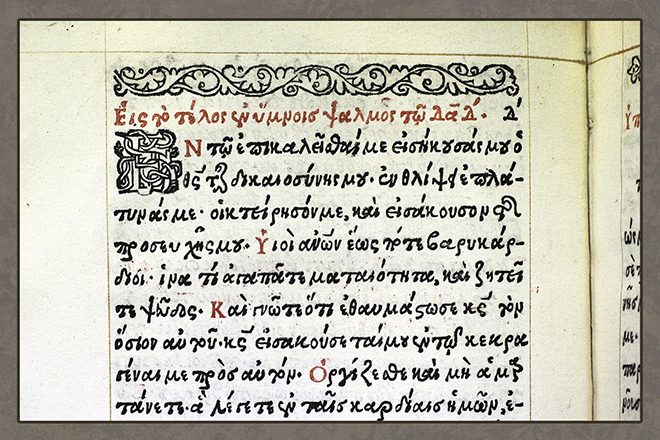 Εἰς τὸ τέλος ἐν ὕμνοις ψαλμὸς τῷ Δᾱδ. Δ
ΕΝ τῷ ἐπικαλεῖσθαί με εἰσήκουσάς μου ὁ
θς τῆς δικαιοσύνης μου· ἐν θλίψει ἐπλά-
τυνάς με· οἰκτείρησόν με, καὶ εἰσάκουσον τῆς
προσευχῆς μου. Υἱοὶ ανων ἕως πότε βαρυκάρ-
διοι· ἱνα τί ἀγαπᾶτε ματαιότητα, καὶ ζητεῖ
τε ψεῦδος. Καὶ γνῶτε ὅτι ἐθαυμάστωσε κς τὸν
ὅσιον αὐτοῦ· κς εἰσακούσεταί μου ἐν τῷ κεκρα
γέναι με πρὸς αὐτόν. Ὀργίζεσθε καὶ μὴ ἁμαρ
τάνετε· ἃ λέγετε ἐν ταῖς καρδίαις ἡμῶν, ἐ-